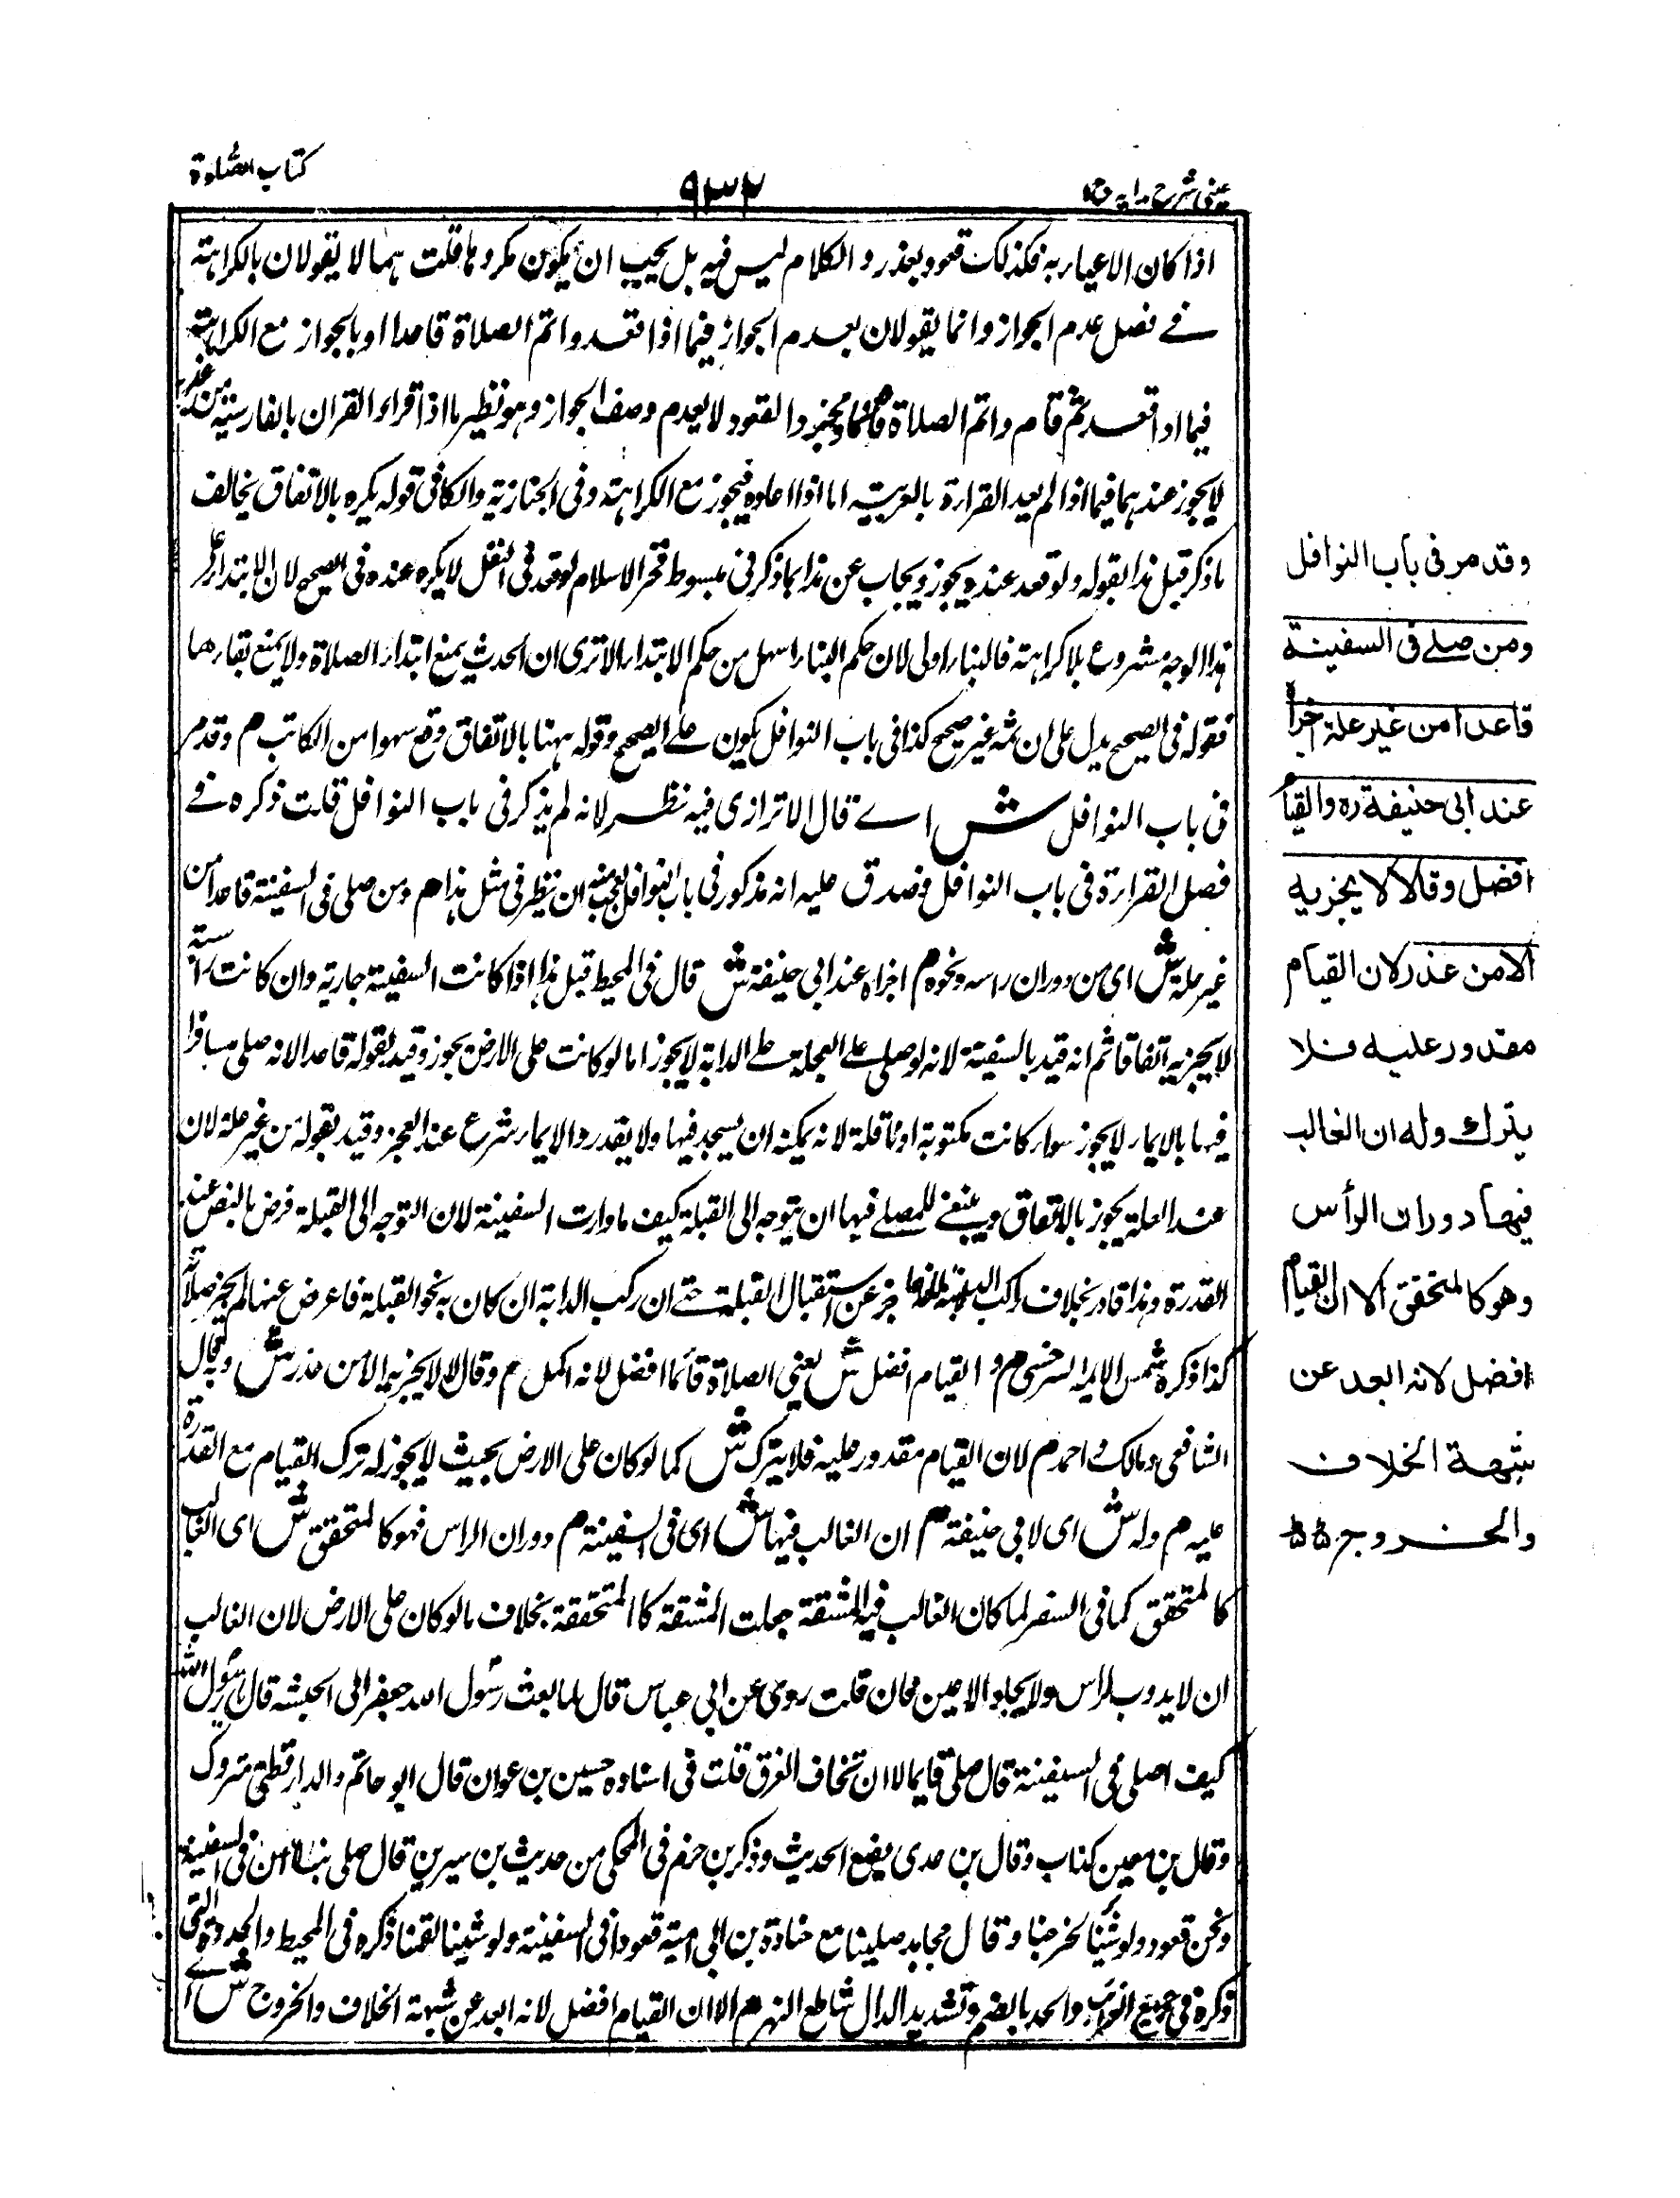 كتاب الصلوة
٩٣٢
عينى شرح هدايه ج١
اذا كان الاعياء به فكذلك قعود بعذر والكلام ليس فيه بل يجيب ان يكون مكروها قلت هما لا يقولان بالكراهته
فے فصل عدم الجواز وانما يقولان بعدم الجواز فيما اذا قعد واتم الصلاة قاعدا او بالجواز مع الكراهته
فيما اذا قعد ثم قام واتم الصلاة قائما ومجرد القعود لا يعدم وصف الجواز وهو نظير ما اذا قراء القران بالفارسية من غير
لا يجوز عندهما فيما اذا لم يعد القراءة بالعربية اما اذا اعاده فيجوز مع الكراهته وفى الجنازية والكافى قوله يكره بالاتفاق يخالف
ما ذكر قبل هذا بقوله ولو قعد عنده يجوز ويجاب عن هذا بما ذكر فى مبسوط فخر الاسلام لو قعد فى النفل لا يكره عنده فى الصحيح لان الابتداء على
هذا الوجه مشروع بلا كراهته فالبناء اولى لان حكم البناء اسهل من حكم الابتداء الا ترى ان الحدث يمنع ابتداء الصلاة ولا يمنع بقاءها
فقوله فى الصحيح يدل على ان ثمه غير صحيح كذا فى باب النوافل يكون على الصحيح وقوله ههنا بالاتفاق وقع سهوا من الكاتب م وقد مر
فى باب النوافل ش اے قال الاترازى فيه نظر لانه لم يذكر فى باب النوافل قلت ذكره فے
فصل القراءة فى باب النوافل وصدق عليه انه مذكور فى باب النوافل لعجب منه ان ينظر فى مثل هذا م ومن صلى فى السفينة قاعدا من
غير علة ش اى من دوران راسه ونحوه م اجزاه عند ابى حنيفة ش قال فى المحيط قبل هذا اذا كانت السفينة جارية وان كانت راسية
لا يجزيه اتفاقا ثم انه قيد بالسفينة لانه لو صلى على العجلة على الدابة لا يجوز اما لو كانت على الارض يجوز وقيد بقوله قاعدا لانه صلى مسافرا
فيها بالايماء لا يجوز سواء كانت مكتوبة او نافلة لانه يمكنه ان يسجد فيها ولا يقدر والايماء شرع عند العجز وقيد بقوله من غير علة لان
عند العلة يجوز بالاتفاق وينبغے للمصلے فيها ان يتوجه الى القبلة كيف ما دارت السفينة لان التوجه الى القبلة فرض بالنص عند
القدرة وهذا قادر بخلاف راكب الدابة عن استقبال القبلة حتے ان ركب الدابة ان كان به نحو القبلة فاعرض عنها لم يجز صلاته
كذا ذكره شمس الايمه السرخسى م و القيام افضل ش يعنى الصلاة قائما افضل لانه اكمل م وقالا لا يجزيه الا من عذر ش وبه قال
الشافعى ومالك واحمد م لان القيام مقدور عليه فلا يترك ش كما لو كان على الارض بحيث لا يجوز له ترك القيام مع القدرة
عليه م وله ش اى لابى حنيفة م ان الغالب فيها ش اى فى السفينة م دوران الراس فهو كالمتحقق ش اى الغالب
كالمتحقق كما فى السفر لما كان الغالب فيه المشقة جعلت المشقة كالمتحققة بخلاف ما لو كان على الارض لان الغالب
ان لا يدور الراس فان قلت روى عن ابى عباس قال لما بعث رسول الله جعفر الى الحبشه قال يا رسول الله
كيف اصلى فى السفينة قال صلى قايما الا ان تخاف الغرق قلت فى اسناده حسين بن عوان قال ابو حاتم والدارقطنى متروك
وقال بن معين كذاب وقال بن عدى يضع الحديث وذكر بن حزم فى المحلى من حديث بن سيرين قال صلى بنا انس فى السفينة
ونحن قعود ولو شئنا لخرجنا وقال مجاهد صلينا مع جنادة بن ابى امية قعودا فى السفينة ولو شينا لقمنا ذكره فى المحيط والجد
ذكره فى جميع والجد بالضم وتشديد الدال شاطع النهر م الا ان القيام افضل لانه ابعد عن شبهة الخلاف والخروج ش
وقد مر فى باب النوافل
ومن صلے فى السفينة
قاعدا من غير علة اجزأ
عند ابى حنيفة ره والقيام
افضل وقالا لا يجزيه
الا من عذر لان القيام
مقدور عليه فلا
يترك وله ان الغالب
فيها دوران الرأس
وهو كالمتحقق الا ان القيام
افضل لانه ابعد عن
شبهة الخلاف
والخروج